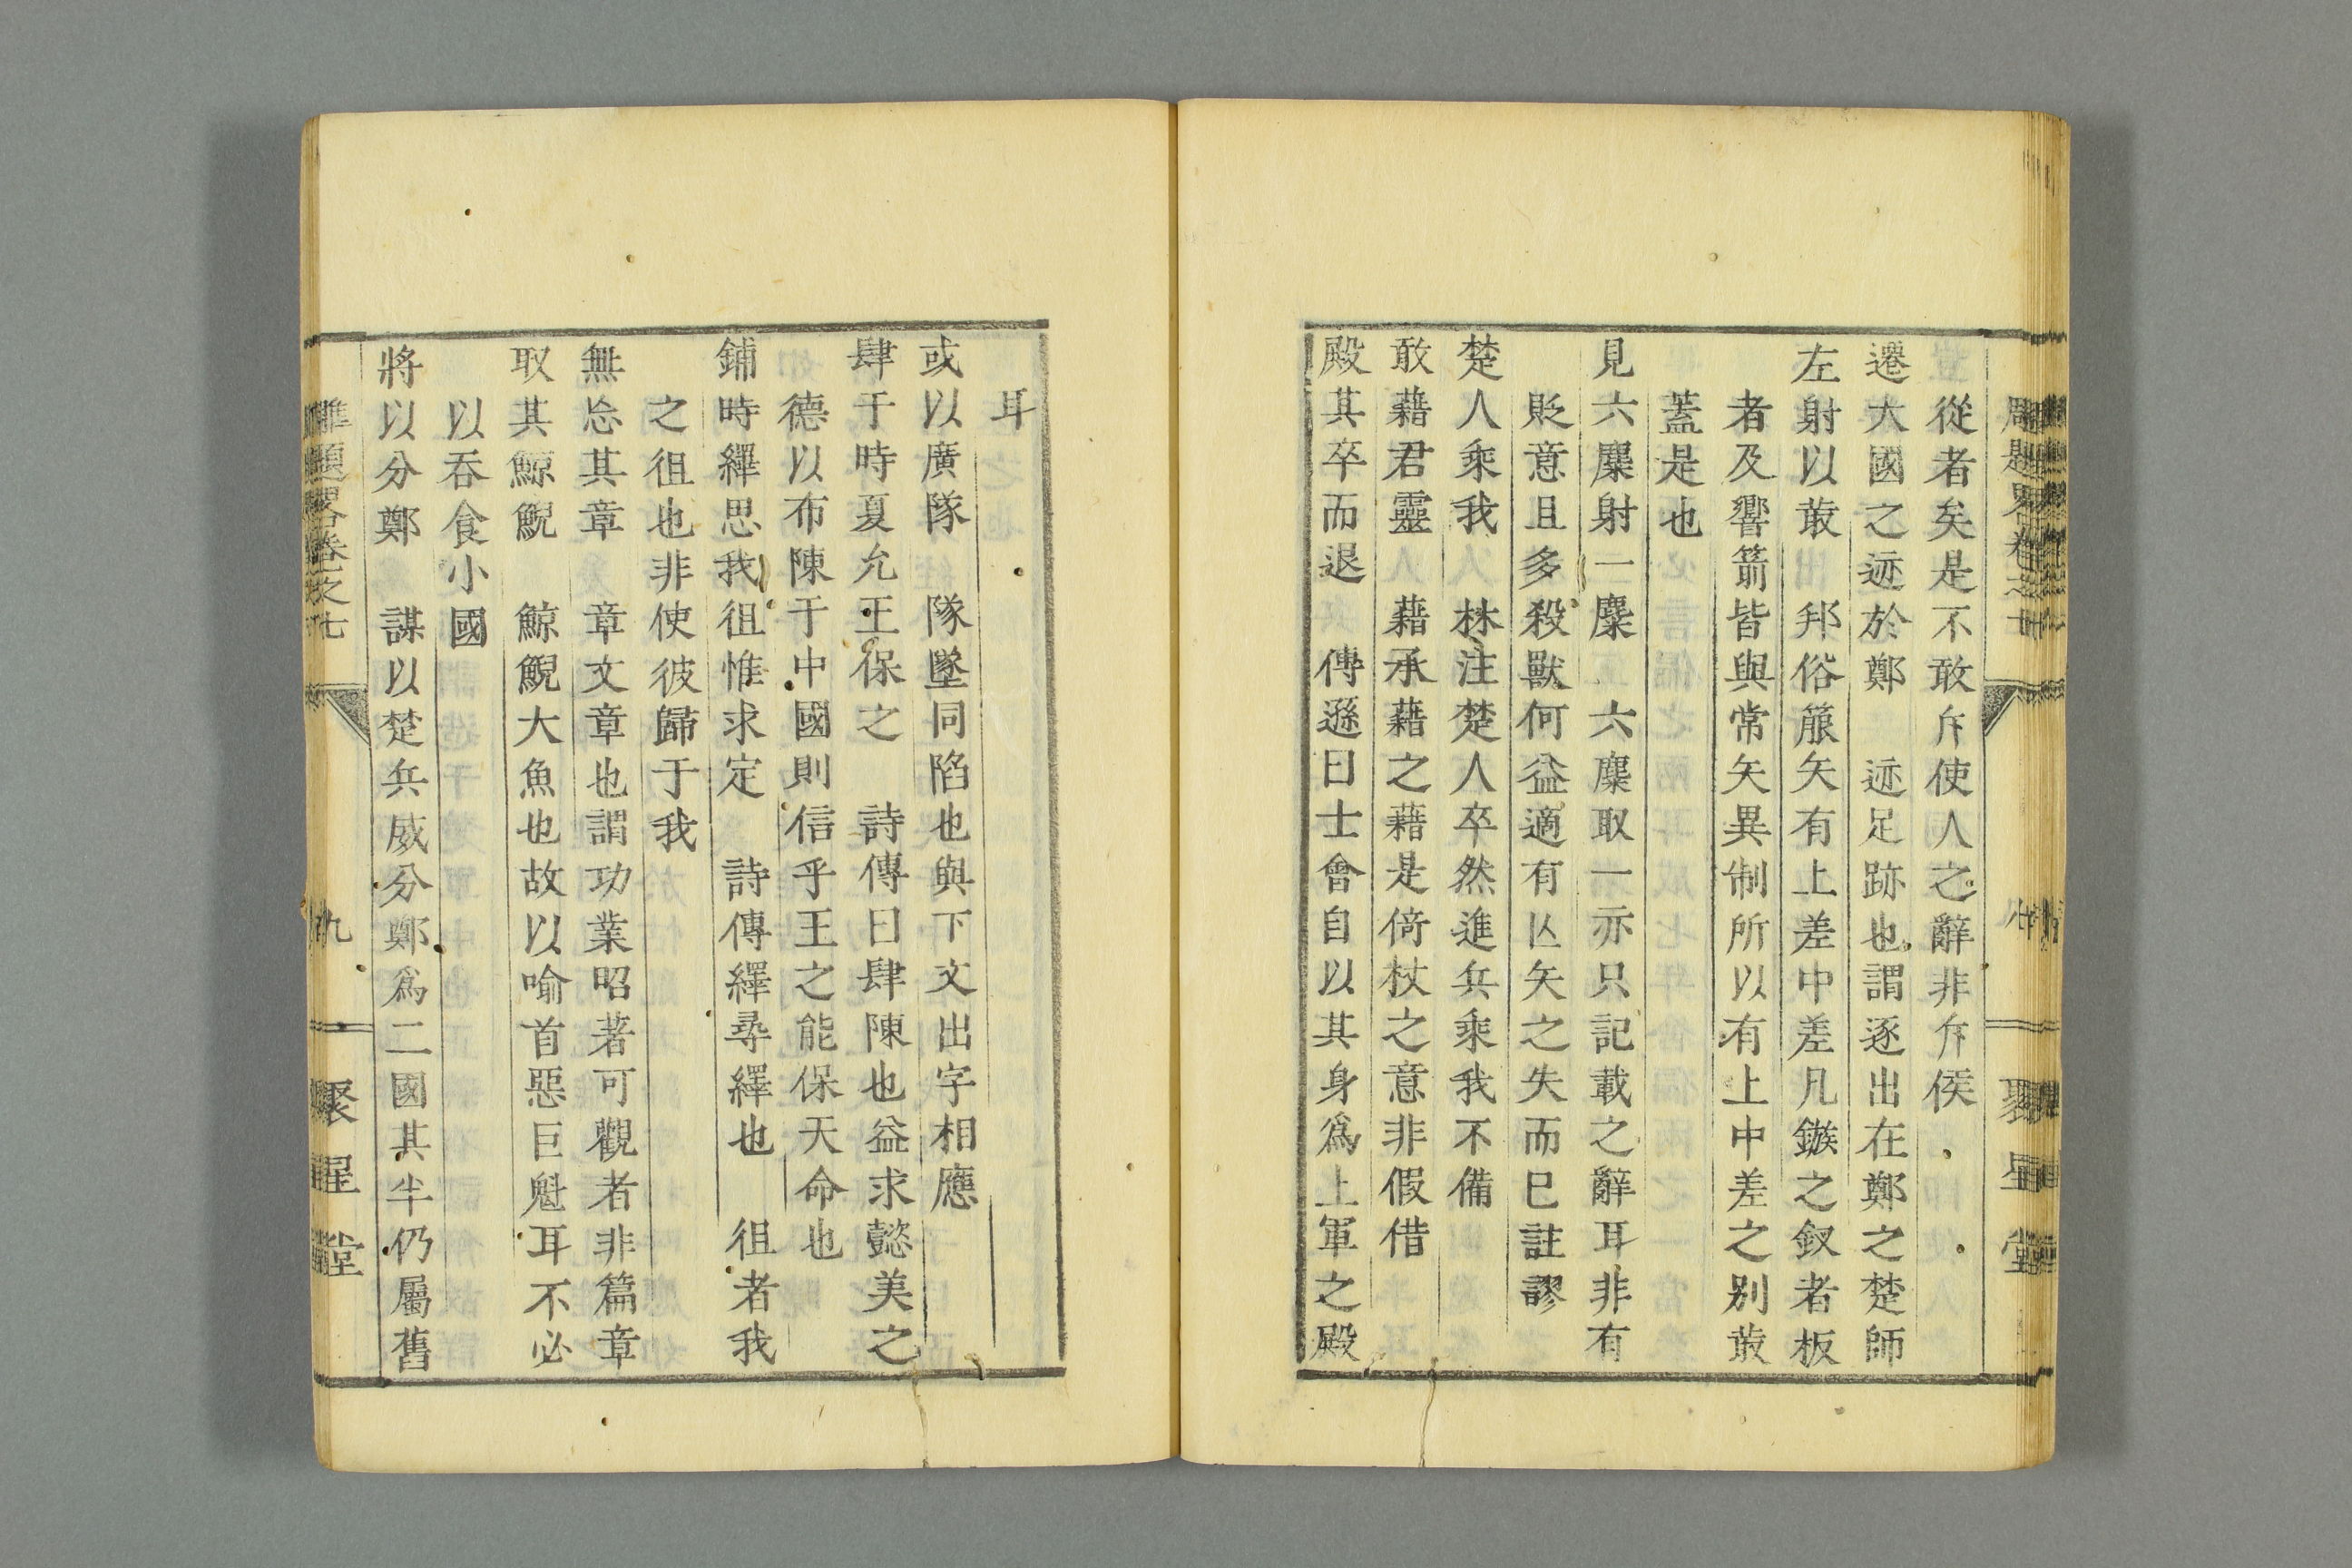 從者矣是不敢斥使人之辭非斥侯
遷大國之迹於鄭　迹足跡也謂逐出在鄭之楚師
左射以菆　邦俗箙矢有上差中差凡鏃之釵者板
者及響箭皆與常矢異制所以有上中差之别菆
蓋是也
見六麋射一麋　六麋取一亦只記載之辭耳非有
貶意且多殺獸何益適有亾矢之失而已註謬
楚人乘我　林注楚人卒然進兵乘我不備
敢藉君靈　藉承藉之藉是倚杖之意非假借
殿其卒而退　傳遜曰士會自以其身爲上軍之殿
耳
或以廣隊　隊墜同陷也與下文出字相應
肆于時夏允王保之　詩傳曰肆陳也益求懿美之
德以布陳于中國則信乎王之能保天命也
鋪時繹思我徂惟求定　詩傳繹尋繹也　徂者我
之徂也非使彼歸于我
無忘其章　章文章也謂功業昭著可觀者非篇章
取其鯨鯢　鯨鯢大魚也故以喻首惡巨魁耳不必
以吞食小國
將以分鄭　謀以楚兵威分鄭爲二國其半仍屬舊
雕題畧卷之七　九　聚星堂